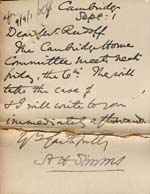 Cambridge
Sept: 1
Dear Mr Rudolf
The Cambridge Home
Committee meets next
friday, the 6th. The will
take the case of
& I will write to you
immediately afterwards
Yrs faithfully
A H Simms